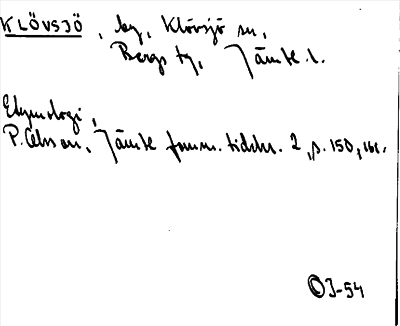 KLÖVSJÖ, by, Klövsjö sn,
Bergs tg, Jämtl. l.
Etymologi,
P. Olsson, Jämtl fornm. tidskr. 2, s. 150, 161.
OJ-54